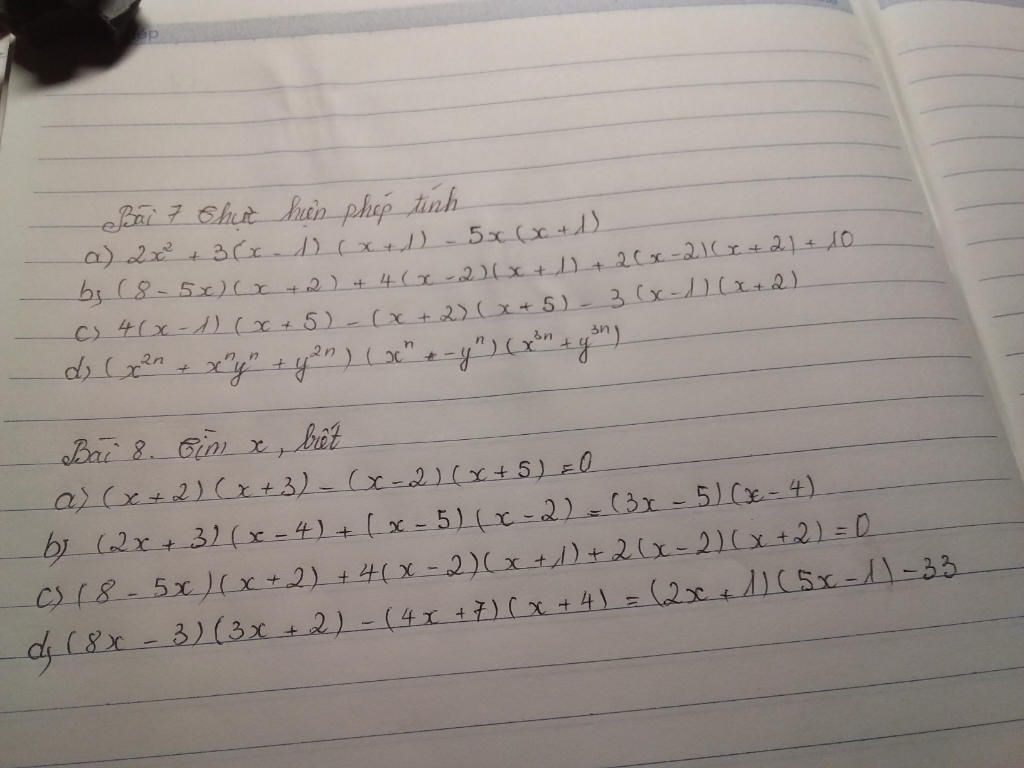 ếp
Bài 7 Thực hiện phép tính
a) 2x² + 3(x - 1)(x + 1) - 5x(x + 1)
b) (8 - 5x)(x + 2) + 4(x - 2)(x + 1) + 2(x - 2)(x + 2) + 10
c) 4(x - 1)(x + 5) - (x + 2)(x + 5) - 3(x - 1)(x + 2)
d) (x²ⁿ + xⁿyⁿ + y²ⁿ)(xⁿ - yⁿ)(x³ⁿ + y³ⁿ)
Bài 8. Tìm x, biết
a) (x + 2)(x + 3) - (x - 2)(x + 5) = 0
b) (2x + 3)(x - 4) + (x - 5)(x - 2) = (3x - 5)(x - 4)
c) (8 - 5x)(x + 2) + 4(x - 2)(x + 1) + 2(x - 2)(x + 2) = 0
d) (8x - 3)(3x + 2) - (4x + 7)(x + 4) = (2x + 1)(5x - 1) - 33